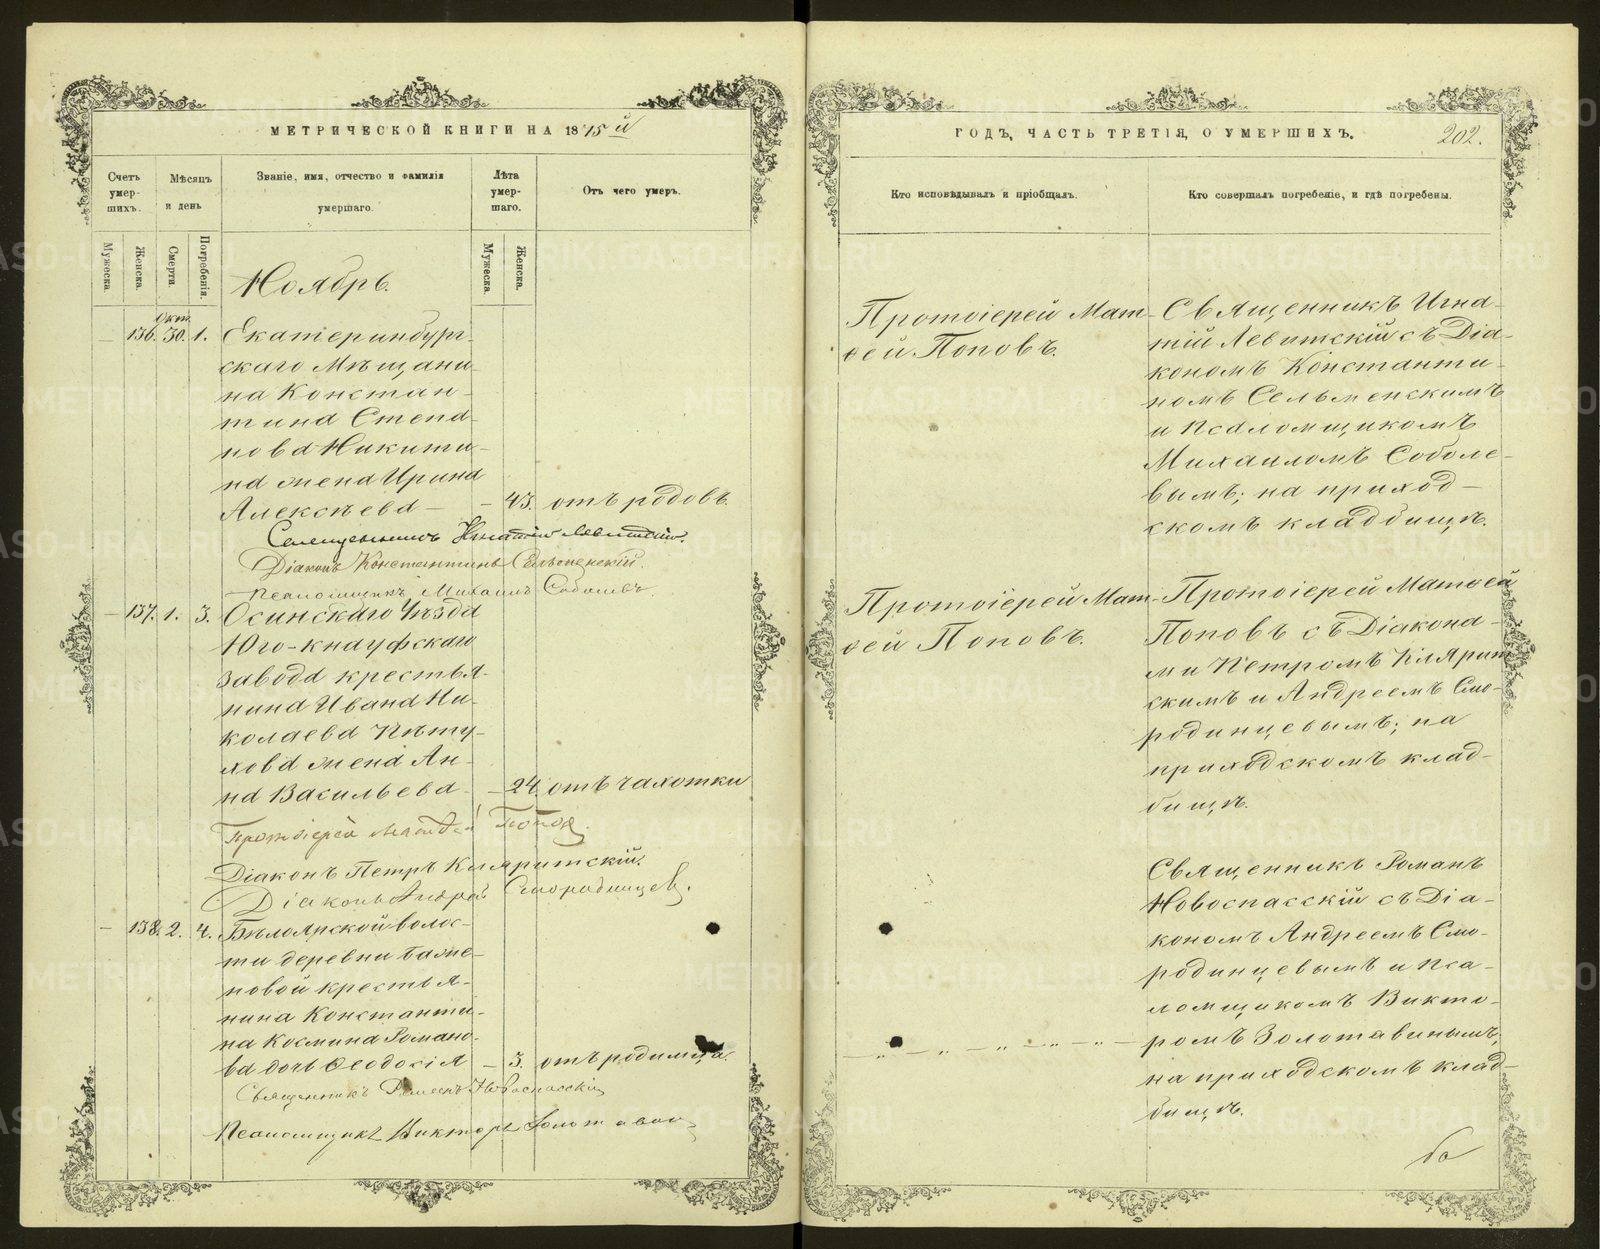 МЕТРИЧЕСКОЙ КНИГИ НА 1875й
Счетъ умер-шихъ.
Мѣсяцъ и день
Званіе, имя, отчество и фамилія умершаго.
Лѣта умер-шаго.
Отъ чего умеръ.
Мужеска.
Женска.
Смерти.
Погребенія.
Мужеска.
Женска.
Ноябрь.
Окт.
— 136. 30. 1. Екатеринбург-
скаго Мѣщани-
на Констан-
тина Степа-
нова Никити-
на жена Ирина
Алексѣева — — 43. отъ родовъ.
Священникъ Игнатій Левитскій.
Діаконъ Константинъ Сельменскій.
Псаломщикъ Михаилъ Соболевъ.
— 137. 1. 3. Осинскаго Уѣзда
Юго-кнауфскаго
завода крестья-
нина Ивана Ни-
колаева Пѣту-
хова жена Ан-
на Васильева — 24. отъ чахотки
Протоіерей Матѳей Попов.
Діаконъ Петръ Кляритскій.
Діаконъ Андрей Смородинцев.
— 138. 2. 4. Бѣлоярской волос-
ти деревни Баже-
новой крестья-
нина Константи-
на Космина Романо-
ва дочь Ѳеодосія — 3. отъ родимца
Священникъ Романъ Новоспасскій
Псаломщикъ Викторъ Золотавин
ГОДЪ, ЧАСТЬ ТРЕТІЯ, О УМЕРШИХЪ.
202.
Кто исповѣдывалъ и пріобщалъ.
Кто совершалъ погребеніе, и гдѣ погребены.
Протоіерей Мат-
ѳей Поповъ.
Священникъ Игна-
тій Левитскій съ Діа-
кономъ Константи-
номъ Сельменскимъ
и псаломщикомъ
Михаиломъ Соболе-
вымъ; на приход-
скомъ кладбищѣ.
Протоіерей Мат-
ѳей Поповъ.
Протоіерей Матѳей
Поповъ съ Діакона-
ми Петромъ Клярит-
скимъ и Андреемъ Смо-
родинцевымъ; на
приходскомъ клад-
бищѣ.
— „ — „ — „ — „ — „ —
Священникъ Романъ
Новоспасскій съ Діа-
кономъ Андреемъ Смо-
родинцевымъ и Пса-
ломщикомъ Викто-
ромъ Золотавинымъ;
на приходскомъ клад-
бищѣ.
METRIKI.GASO-URAL.RU